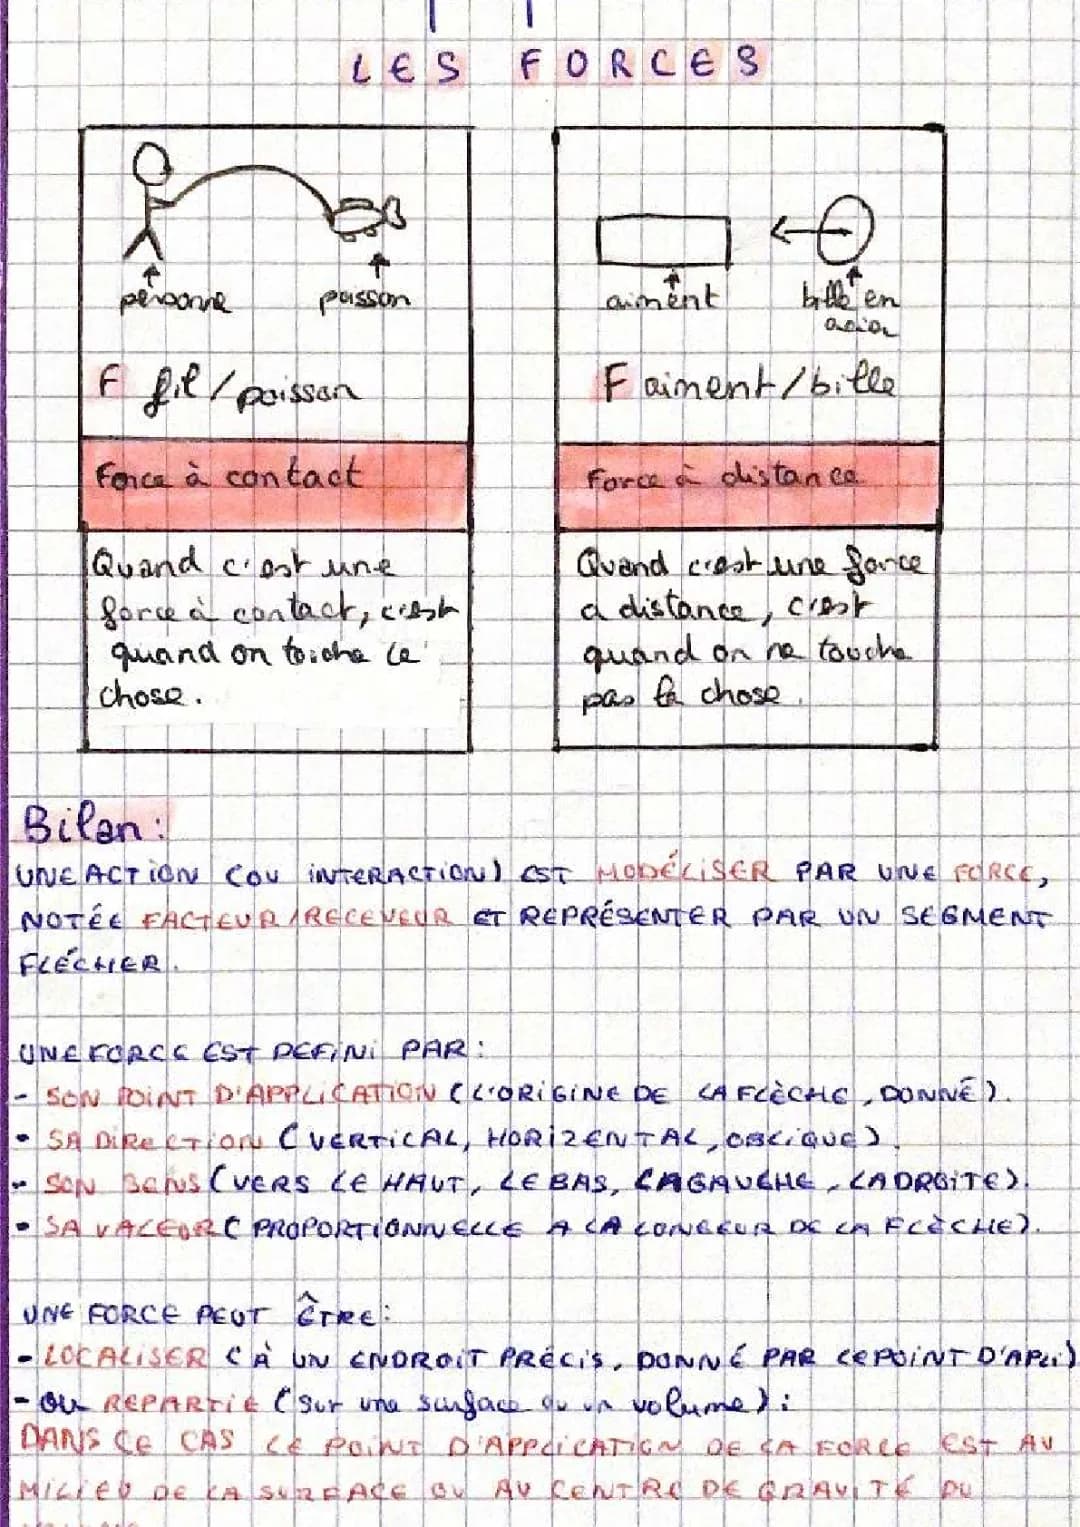 LES FORCES
personne
poisson
F fil/poisson
Force à contact
Quand c'est une
force à contact, c'est
quand on toiche le
chose.
aiment
bille en
acier
F aiment/bille
Force à distance
Quand c'est une force
a distance, c'est
quand on ne touche
pas la chose.
Bilan:
UNE ACTION (OU INTERACTION) EST MODÉLISER PAR UNE FORCE,
NOTÉE FACTEUR/RECEVEUR ET REPRÉSENTER PAR UN SEGMENT
FLÉCHER.
UNE FORCE EST DEFINI PAR:
- SON POINT D'APPLICATION (L'ORIGINE DE LA FLÈCHE, DONNÉ).
- SA DIRECTION (VERTICAL, HORIZENTAL, OBLIQUE).
- SON SENS (VERS LE HAUT, LE BAS, LA GAUCHE, LA DROITE).
- SA VALEUR (PROPORTIONNELLE A LA LONGEUR DE LA FLÈCHE).
UNE FORCE PEUT ÊTRE:
- LOCALISER (À UN ENDROIT PRÉCIS, DONNÉ PAR LE POINT D'APLI)
- OU REPARTIE (Sur une surface ou un volume):
DANS CE CAS LE POINT D'APPLICATION DE LA FORCE EST AU
MILIEU DE LA SURFACE OU AU CENTRE DE GRAVITÉ DU